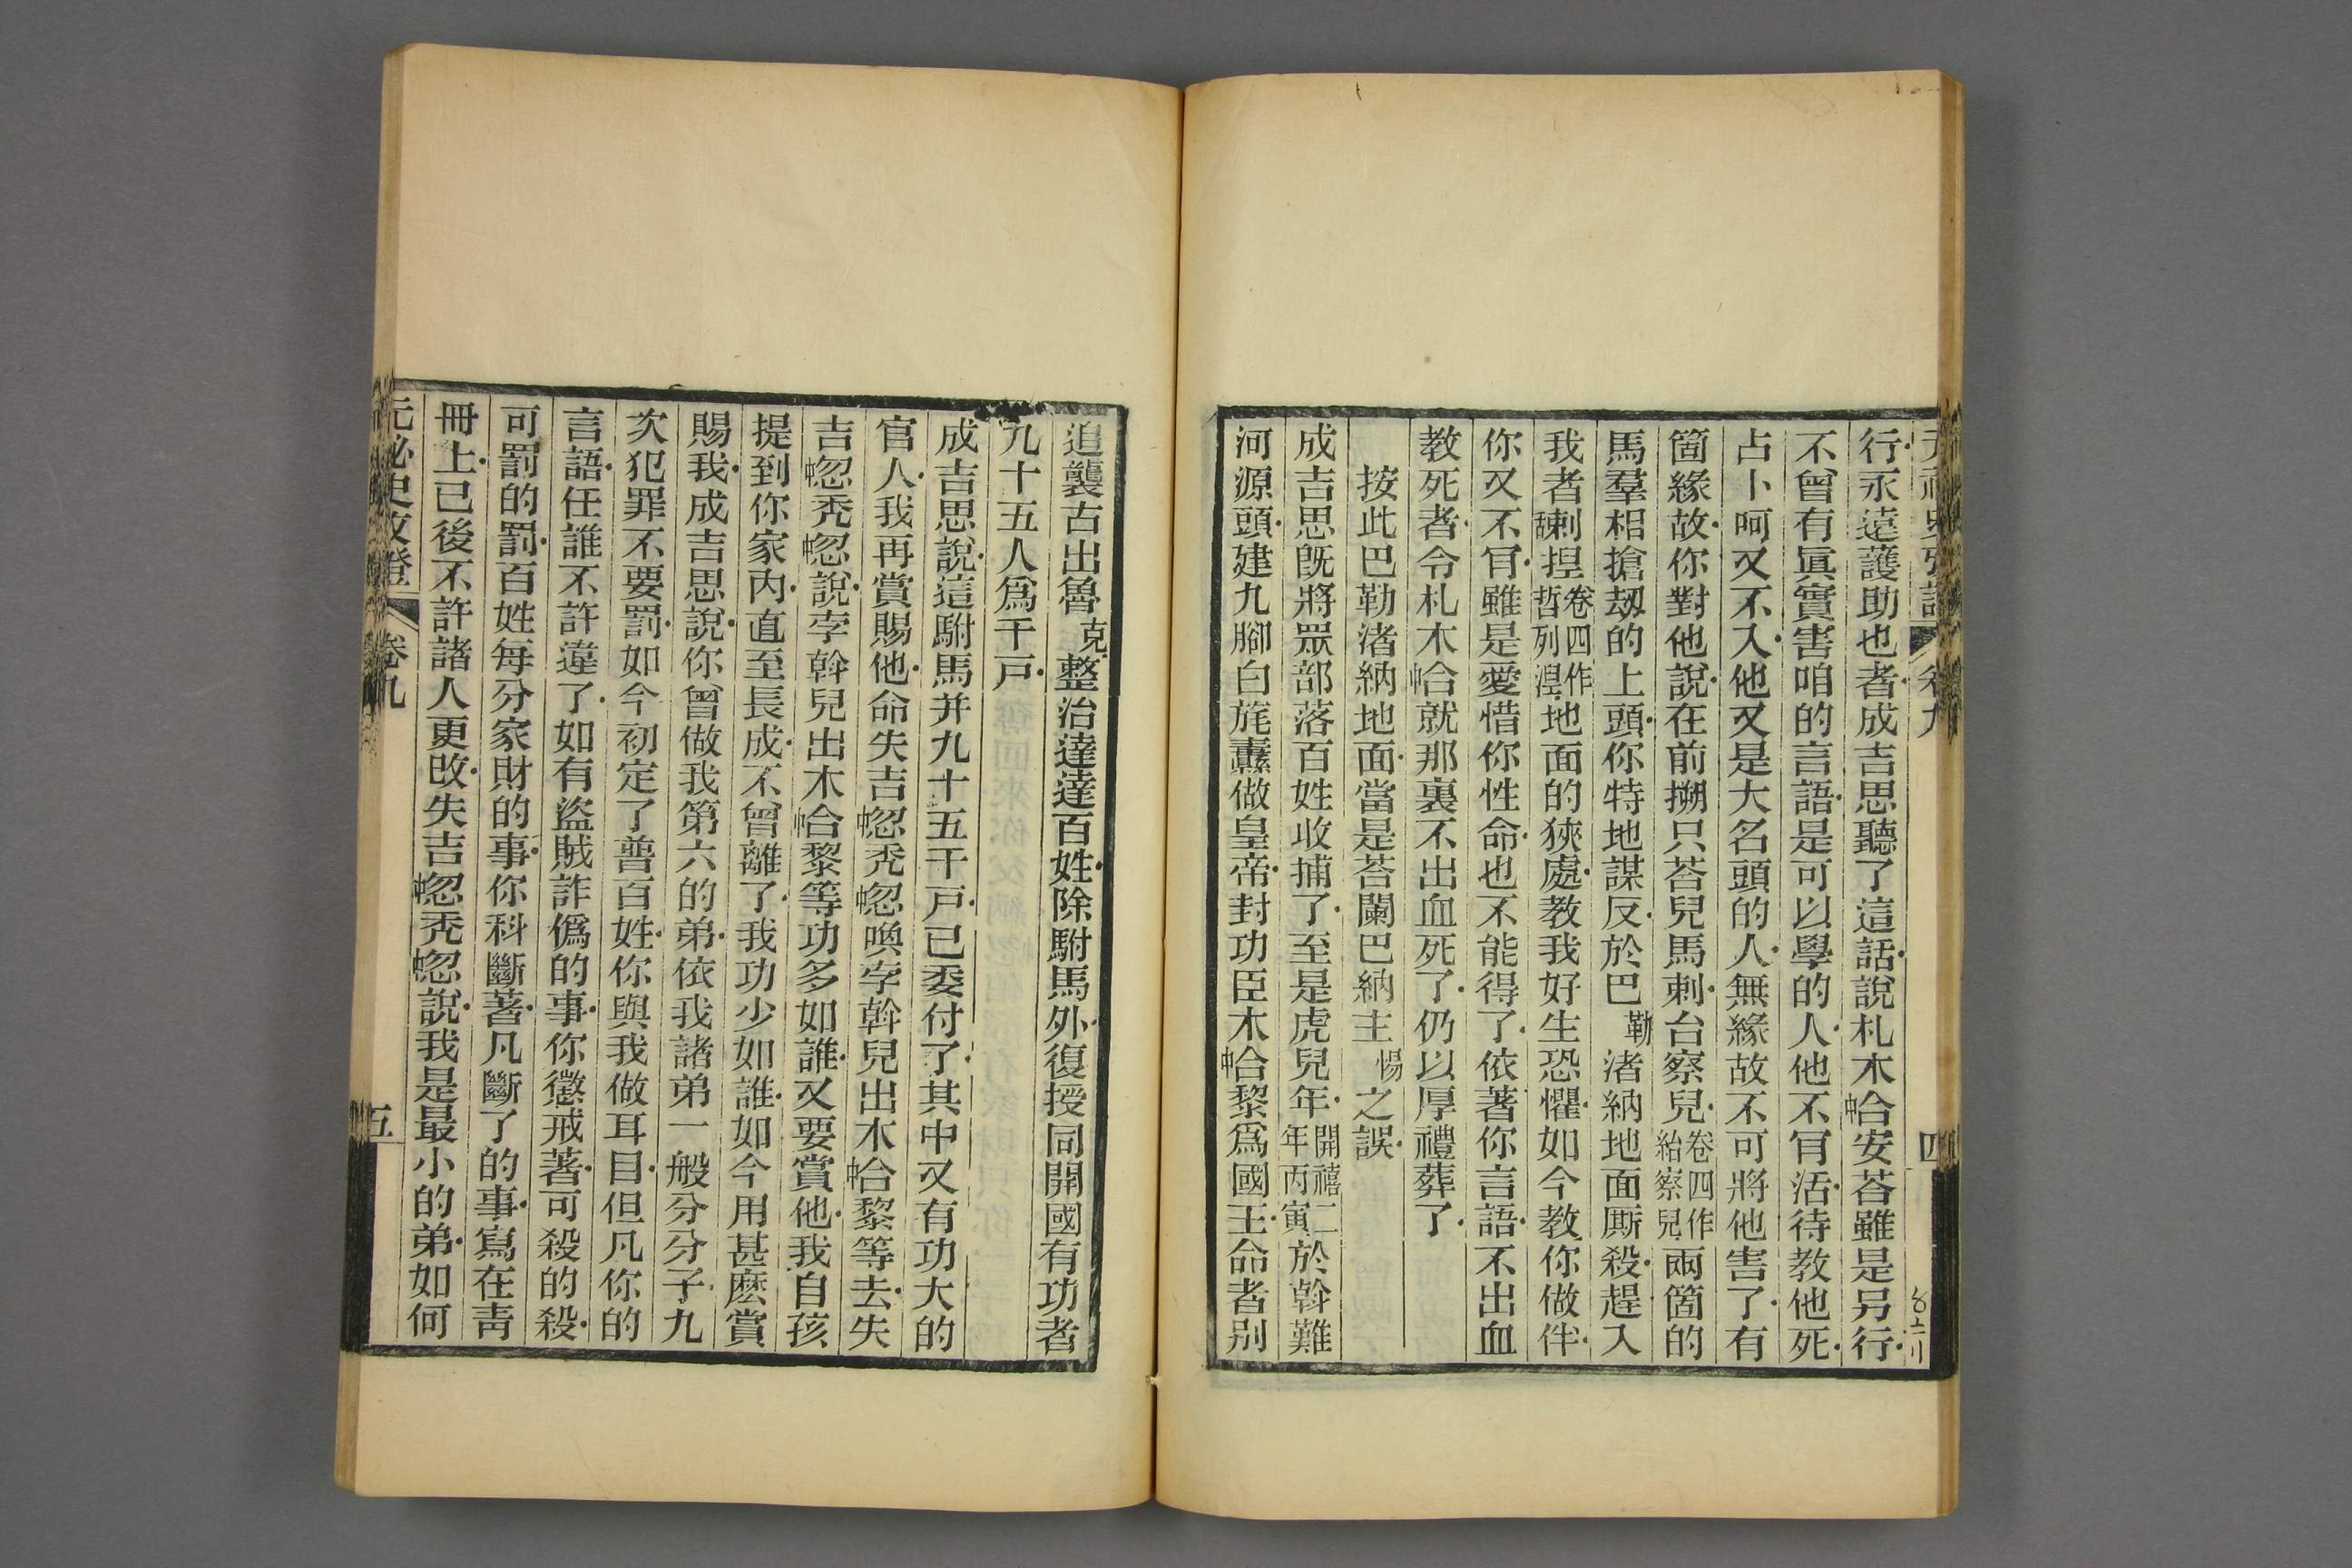 行永遠護助也者成吉思聽了這話說札木中合安荅雖是另行
不曾有眞實害咱的言語是可以學的人他不肎活待教他死
占卜呵又不入他又是大名頭的人無緣故不可將他害了有
箇緣故你對他說在前搠只荅兒馬剌台察兒卷四作紿察兒兩箇的
馬羣相搶刼的上頭你特地謀反於巴勒渚納地面厮殺趕入
我者舌剌捏卷四作哲列湼地面的狹處教我好生恐懼如今教你做伴
你又不肎雖是愛惜你性命也不能得了依著你言語不出血
教死者令札木中合就那裏不出血死了仍以厚禮葬了
按此巴勒渚納地面當是荅闌巴納主惕之誤
成吉思旣將眾部落百姓收捕了至是虎兒年開禧二年丙寅於斡難
河源頭建九腳白旄纛做皇帝封功臣木中合黎爲國王命者別
追襲古出魯克整治達達百姓除駙馬外復授同開國有功者
九十五人爲千戶
成吉思說這駙馬并九十五千戶已委付了其中又有功大的
官人我再賞賜他命失吉中忽禿中忽喚孛斡兒出木中合黎等去失
吉中忽禿中忽說孛斡兒出木中合黎等功多如誰又要賞他我自孩
提到你家內直至長成不曾離了我功少如誰如今用甚麽賞
賜我成吉思說你曾做我第六的弟依我諸弟一般分分子九
次犯罪不要罰如今初定了普百姓你與我做耳目但凡你的
言語任誰不許違了如有盜賊詐僞的事你懲戒著可殺的殺
可罰的罰百姓每分家財的事你科斷著凡斷了的事寫在靑
冊上已後不許諸人更改失吉中忽禿中忽說我是最小的弟如何
元祕史攷證 卷九 五